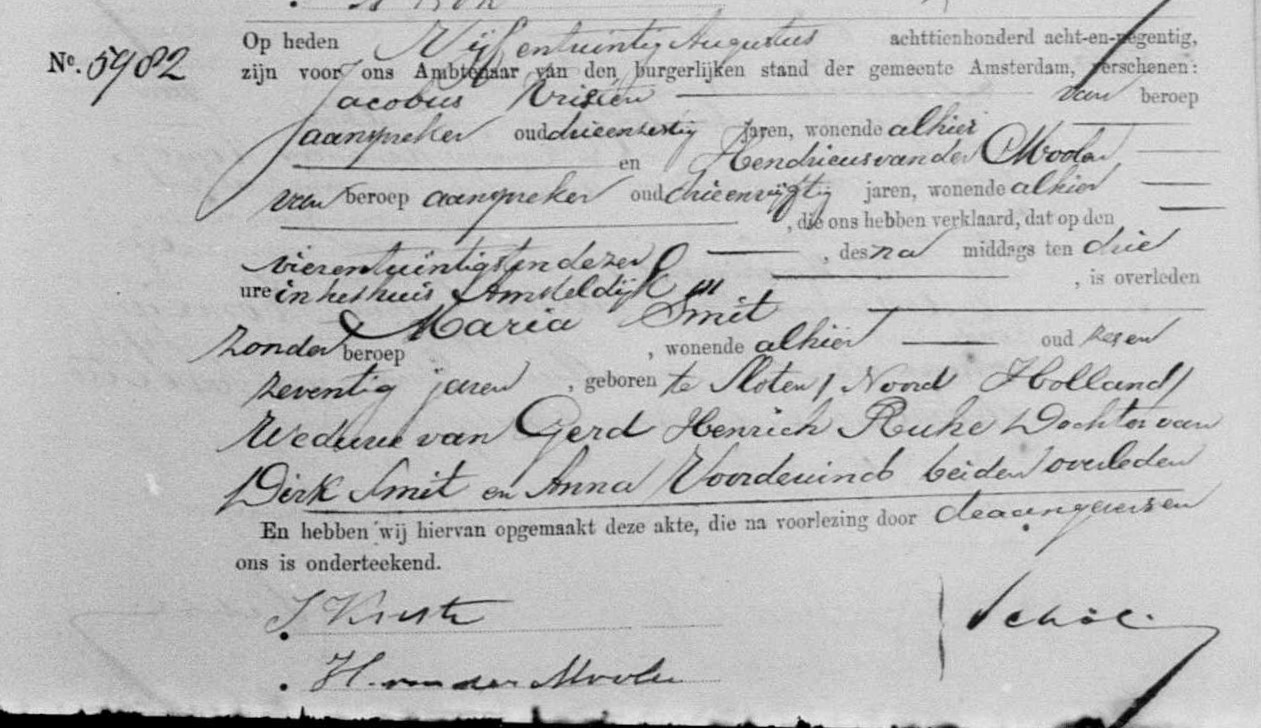 Nº. 5982
Op heden Vijfentwintig Augustus achttienhonderd acht-en-negentig,
zijn voor ons Ambtenaar van den burgerlijken stand der gemeente Amsterdam, verschenen:
Jacobus van beroep
aanspreker oud drieenzestig jaren, wonende alhier
en Hendricus van der Moolen
van beroep aanspreker oud drieenvijftig jaren, wonende alhier
, die ons hebben verklaard, dat op den
vierentwintigsten dezer , des na middags ten drie
ure in het huis Amsteldijk , is overleden
Maria Smit
zonder beroep , wonende alhier oud zesen
zeventig jaren , geboren te Sloten / Noord Holland /
Weduwe van Gerd Henrich Ruhe Dochter van
Dirk Smit en Anna Voordewind beiden overleden
En hebben wij hiervan opgemaakt deze akte, die na voorlezing door de aangevers en
ons is onderteekend.
H. van der Moolen